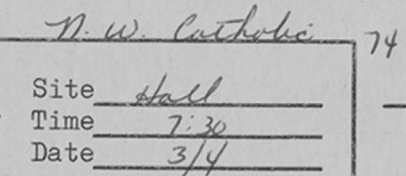 N. W. Catholic
74
Site Hall
Time 7:30
Date 3/4